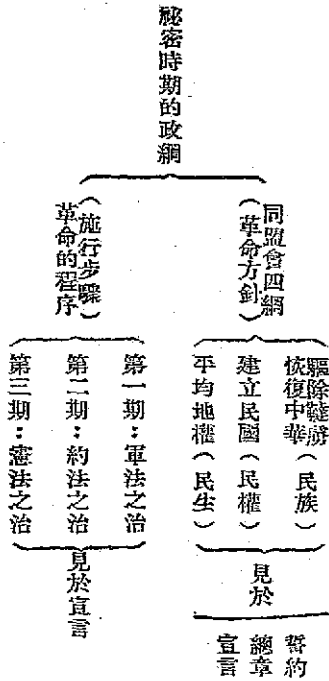 祕密時期的政綱
同盟會四綱
（革命方針）
驅除韃虜
恢復中華（民族）
建立民國（民權）
平均地權（民生）
見於
誓約
總章
宣言
（施行步驟）
革命的程序
第一期：軍法之治
第二期：約法之治
第三期：憲法之治
見於宣言